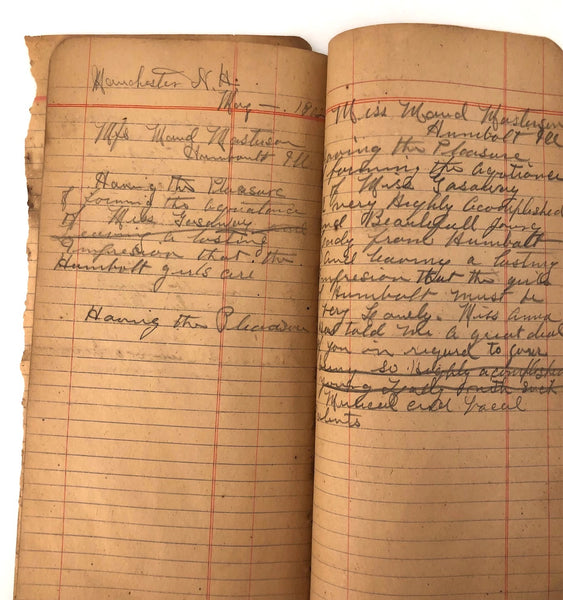 Manchester N.H.
May — 18
Miss Maud Masterson
Humboult Ill
Having the Pleasure
of forming the aquitance
of Miss Gasaway and
leaving a lasting
impression that the
Humbolt girls are
Having the Pleasure
Miss Maud Masterson
Humbolt Ill
aving the Pleasure
forming the aquitiance
of Miss Gasaway
a very Highly Acomplished
and Beautifull young
lady from Humbolt
and leaving a lasting
impresion that the girls
Humbolt must be
very Lovely. Miss Anna
has told me a great deal
you in regard to your
being so Highly acomplished
young Lady with such
Musical and Vocal